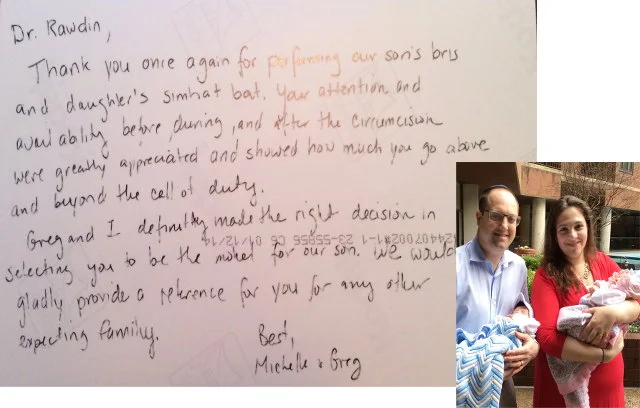 Dr. Rawdin,
Thank you once again for performing our son's bris
and daughter's simhat bat. Your attention and
availability before, during, and after the circumcision
were greatly appreciated and showed how much you go above
and beyond the call of duty.
Greg and I definitley made the right decision in
selecting you to be the mohel for our son. We would
gladly provide a reference for you for any other
expecting family.
Best,
Michelle + Greg